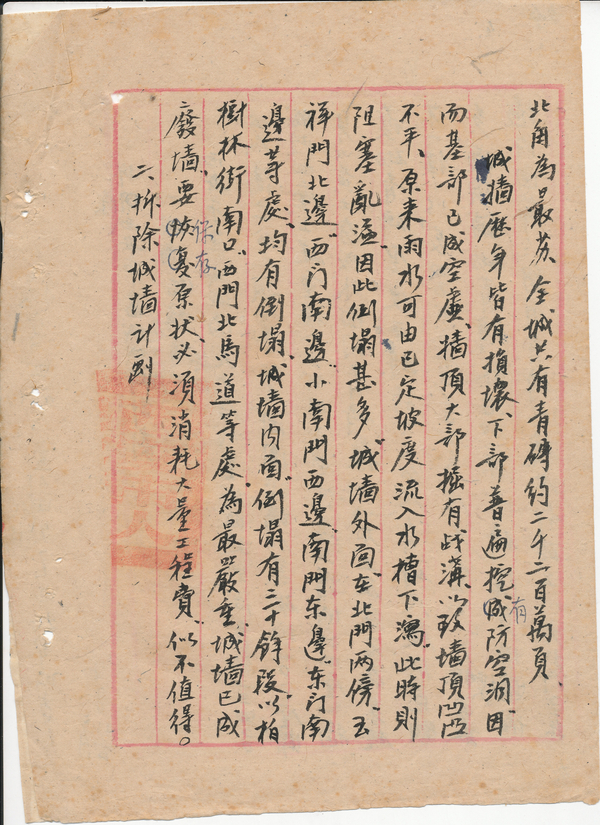 北角為最苏全城共有青磚約二千二百萬頁
城墙歷年皆有損壞、下部普遍挖有城防空洞因
而基部已成空虛、墙頂大部掘有战溝、以致墙頂凹凸
不平、原来雨水可由已定坡度流入水槽下瀉、此時則
阻塞亂溢、因此倒塌甚多、城墙外面在北門两傍、玉
祥門北邊、西门南邊、小南門西邊、南門东邊、东门南
邊等處、均有倒塌、城墙内面、倒塌有二十餘段、以柏
樹林街南口、西門北馬道等處、為最嚴重、城墙已成
廢墙、要恢復原状、必須消耗大量工程費、似不值得。
保存
二、拆除城墙計劃